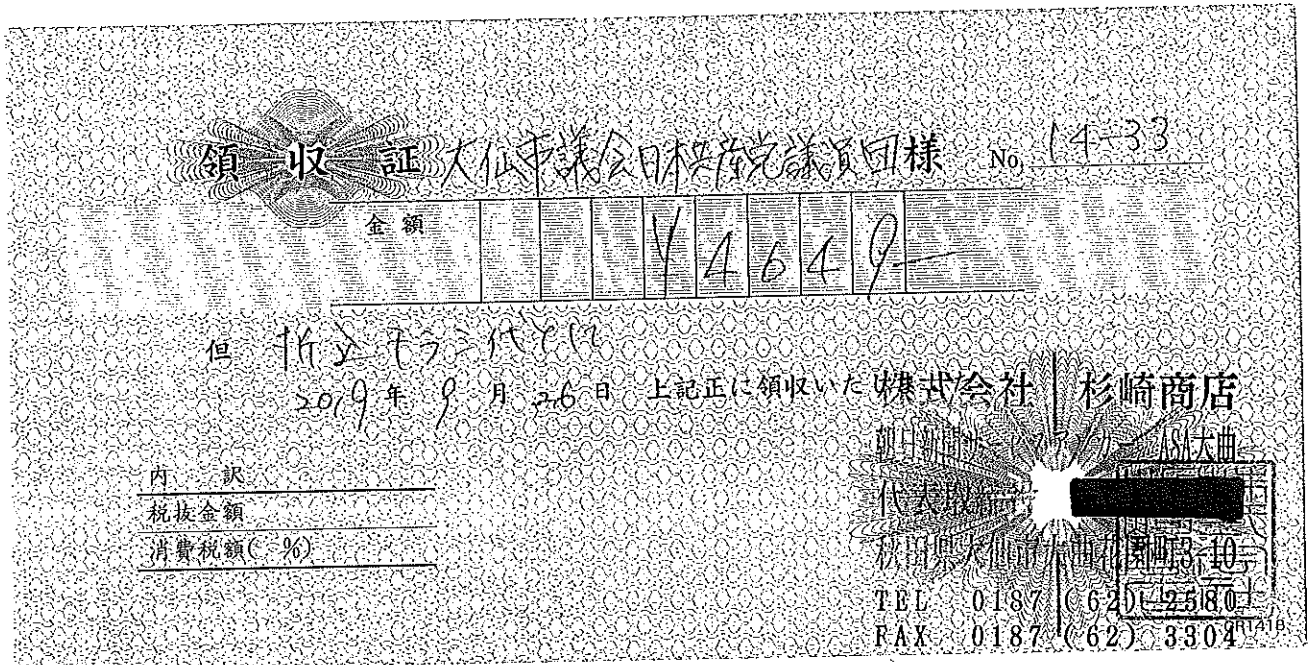 領収証 大仙市議会日本共産党議員団様 No. 14-33
金額 ¥4649-
但 折込チラシ代として
2019年9月26日 上記正に領収いた
株式会社 杉崎商店
朝日新聞サービスアンカー ASA大曲
代表取締
内訳
秋田県大仙市大曲花園町3-10
税抜金額
消費税額( %)
TEL 0187 (62) 2580
FAX 0187 (62) 3304